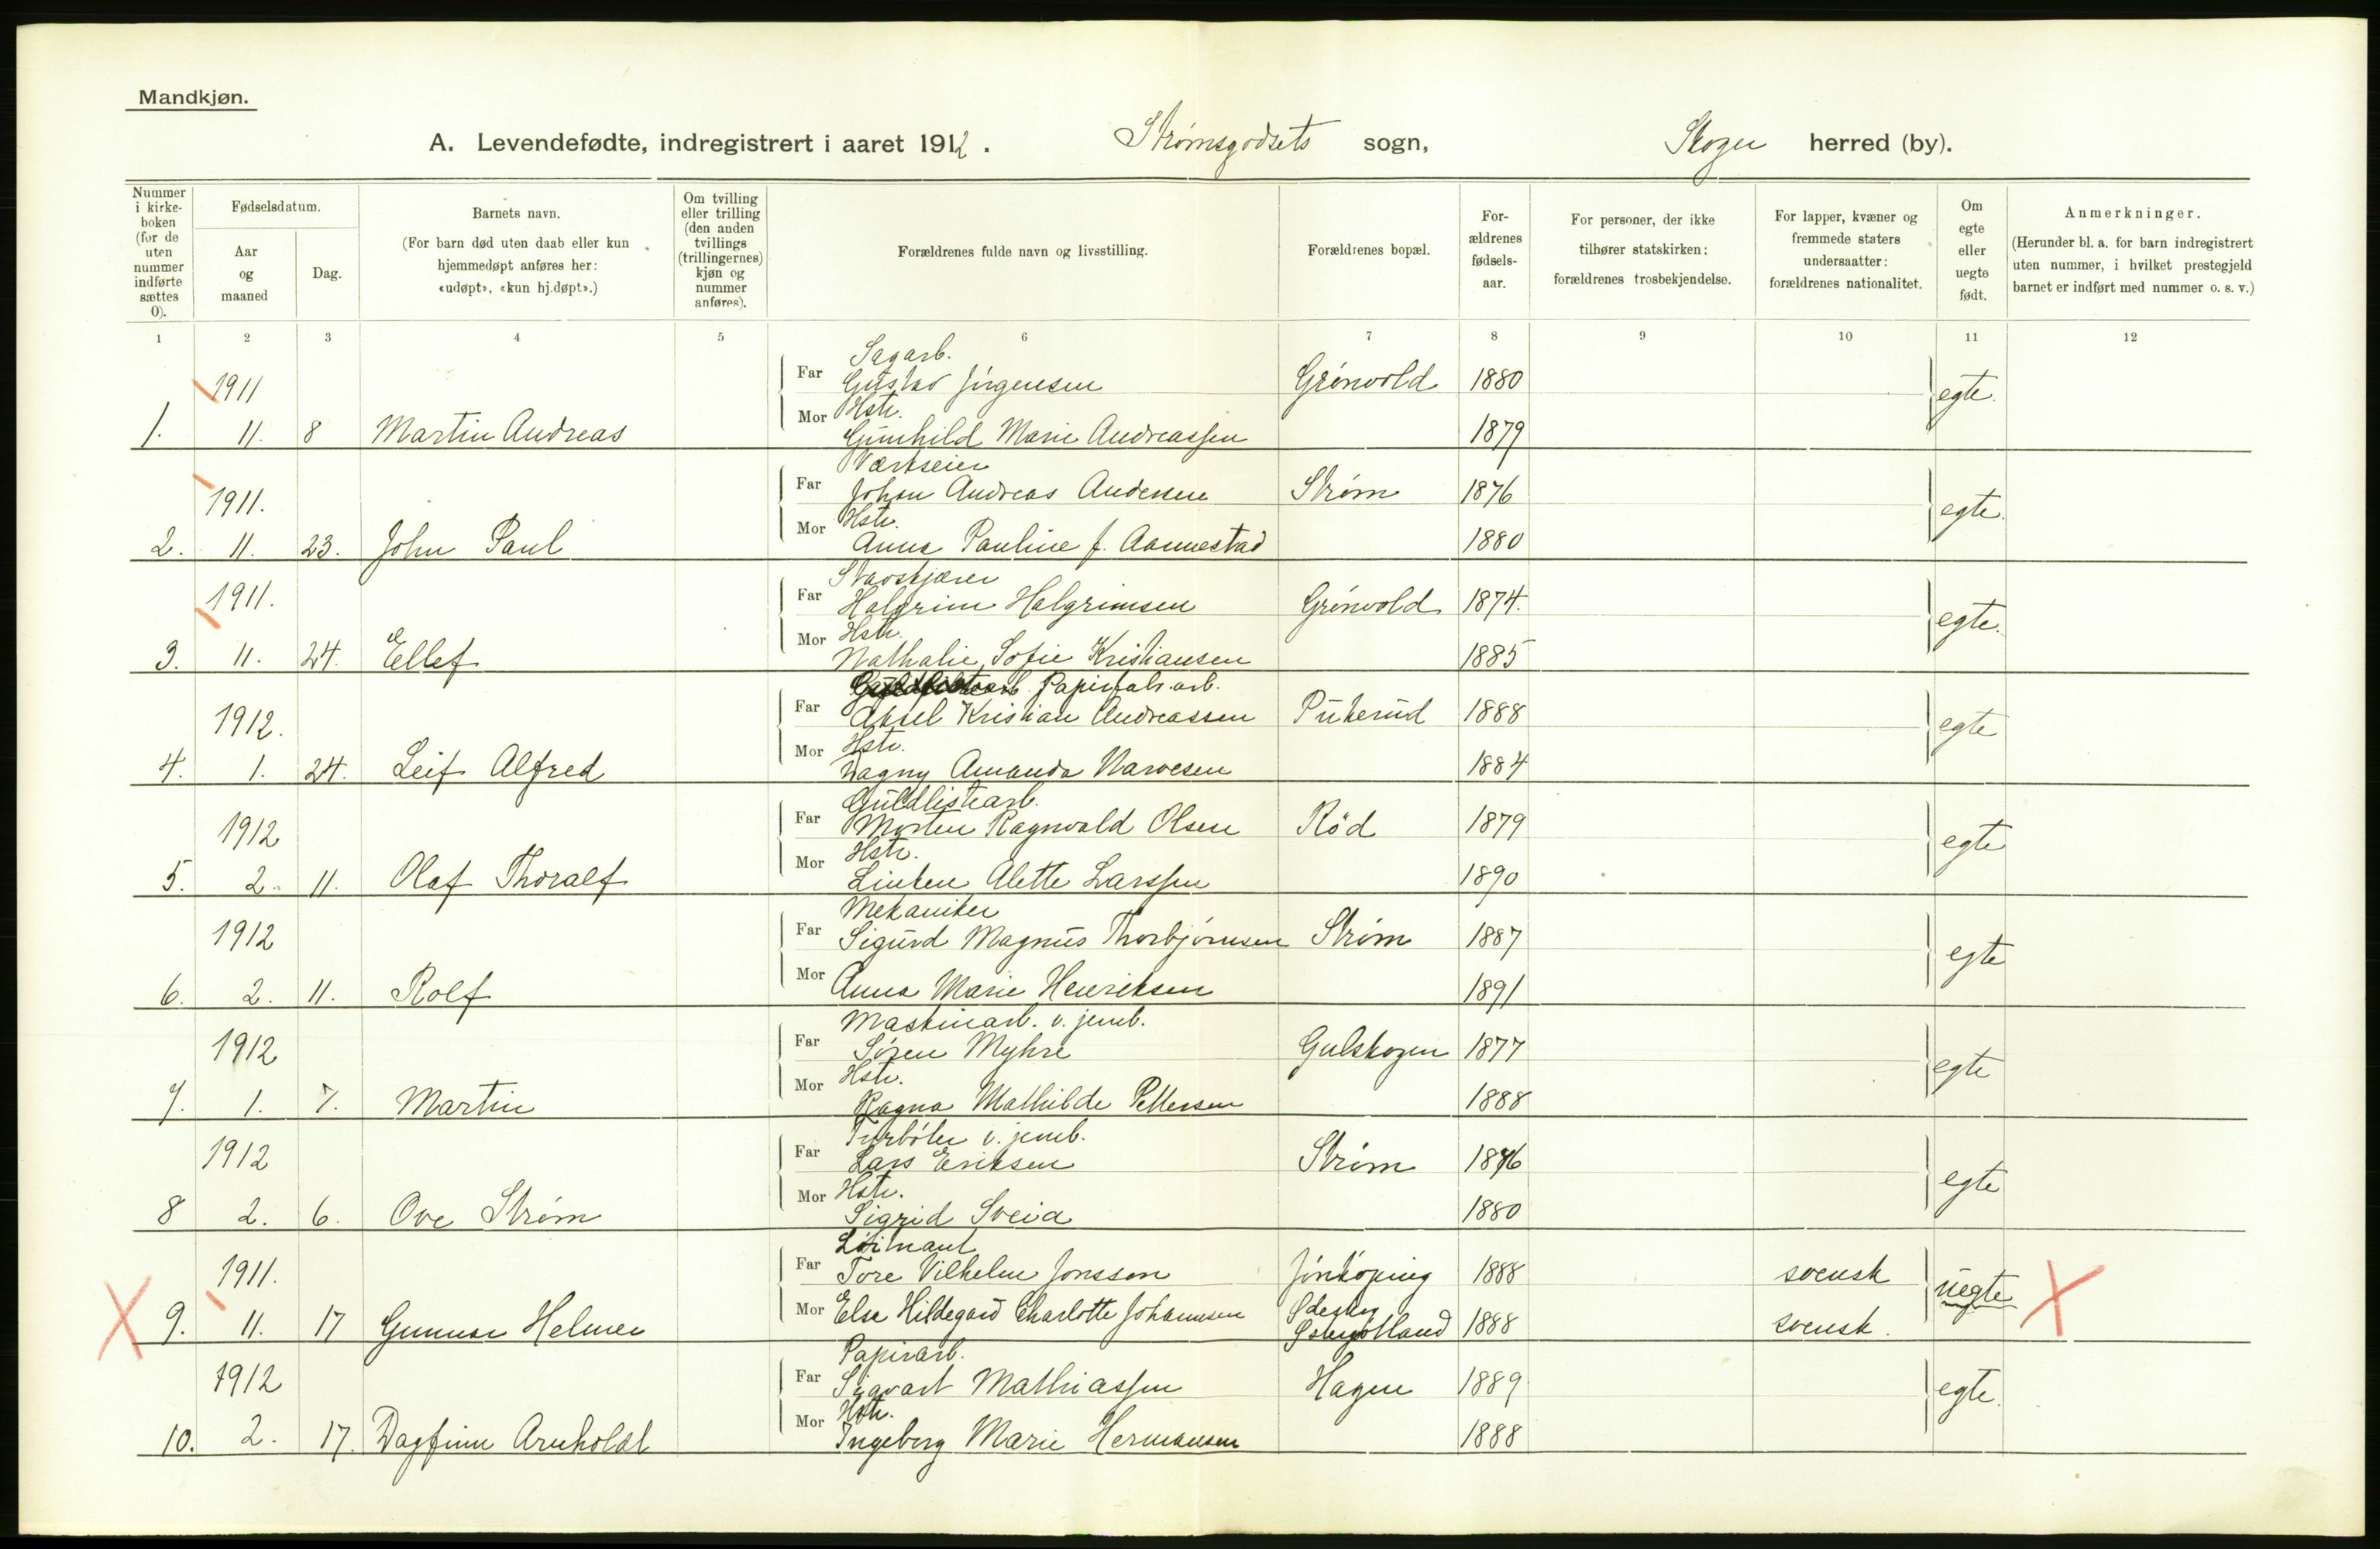 Mandkjøn.
A. Levendefødte, indregistrert i aaret 1912. Strømsgodsets sogn, Skoger herred (by).
Nummer i kirke-boken (for de uten nummer indførte sættes 0).
Fødselsdatum.
Aar og maaned
Dag.
Barnets navn.
(For barn død uten daab eller kun hjemmedøpt anføres her: «udøpt», «kun hj.døpt».)
Om tvilling eller trilling (den anden tvillings (trillingernes) kjøn og nummer anføres).
Forældrenes fulde navn og livsstilling.
Forældrenes bopæl.
For-ældrenes fødsels-aar.
For personer, der ikke tilhører statskirken: forældrenes trosbekjendelse.
For lapper, kvæner og fremmede staters undersaatter: forældrenes nationalitet.
Om egte eller uegte født.
Anmerkninger.
(Herunder bl. a. for barn indregistrert uten nummer, i hvilket prestegjeld barnet er indført med nummer o. s. v.)
1 2 3 4 5 6 7 8 9 10 11 12
Sagarb.
1911 Far Gustav Jørgensen Grønvold 1880 egte.
Mor Hstr.
1. 11. 8 Martin Andreas Gunhild Marie Andreassen 1879
Værkseier
1911. Far Johan Andreas Andersen Strøm 1876 egte.
Mor Hstr.
2. 11. 23. John Paul Anna Pauline f. Aannestad 1880
Stavskjærer
1911. Far Halgrim Halgrimsen Grønvold 1874. egte.
Mor Hstr.
3. 11. 24. Ellef Nathalie Sofie Kristiansen 1885
Papirfabr. arb.
1912. Far Aksel Kristian Andreassen Pukerud 1888 egte
Mor Hstr.
4. 1. 24. Leif Alfred Dagny Amanda Narvesen 1884
Guldlistearb.
1912 Far Morten Ragnvald Olsen Rød 1879 egte
Mor Hstr.
5. 2. 11. Olaf Thoralf Linken Alette Larssen 1890
Mekaniker
1912 Far Sigurd Magnus Thorbjørnsen Strøm 1887 egte
6. 2. 11. Rolf Mor Anna Marie Henriksen 1891
Maskinarb. v. jernb.
1912 Far Søren Myhre Gulskogen 1877 egte
Mor Hstr.
7. 1. 7. Martin Ragna Mathilde Pettersen 1888
Fyrbøter v. jernb.
1912 Far Lars Eriksen Strøm 1876 egte
Mor Hstr.
8 2. 6. Ove Strøm Sigrid Sveia 1880
Løitnant
1911. Far Tore Vilhelm Jonsson Jönköping 1888 svensk uegte
9. 11. 17 Gunnar Helmer Mor Else Hildegard Charlotte Johannsen Østergötland 1888 svensk.
Papirarb.
1912 Far Sigvart Mathiassen Hagen 1889 egte.
Mor Hstr.
10. 2. 17. Dagfinn Arnholdt Ingeborg Marie Hermansen 1888